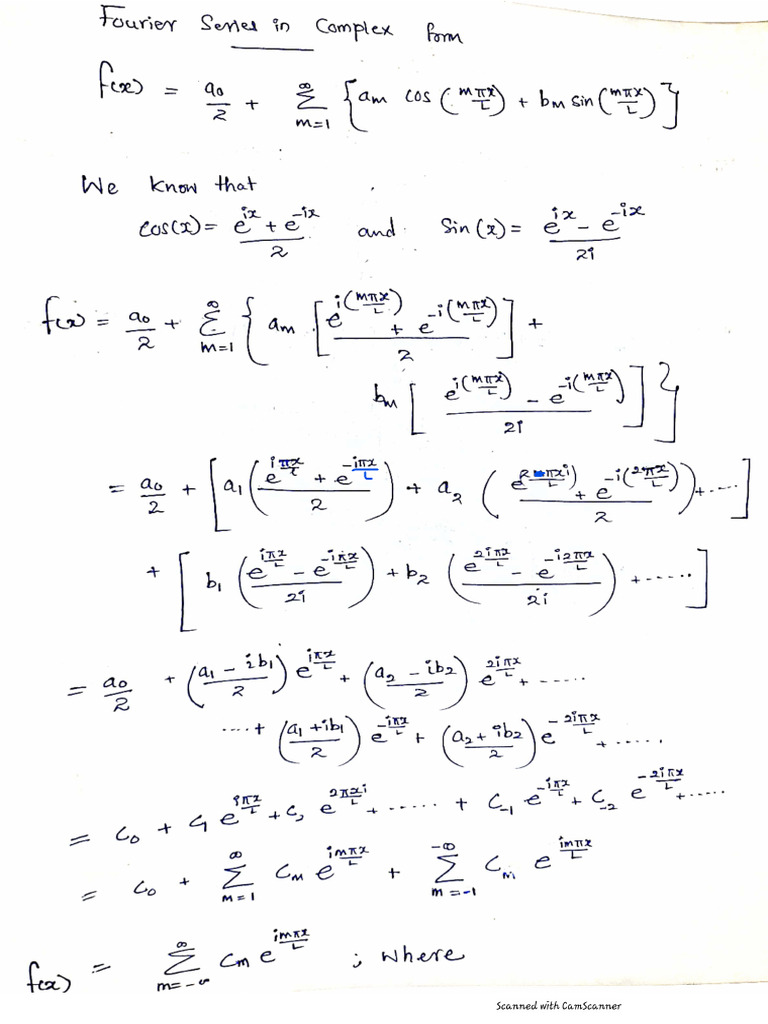 Fourier Series in Complex form
f(x) = a0/2 + ∞Σm=1 { am cos (mπx/L) + bm sin (mπx/L) }
We know that
cos(x) = (e^ix + e^-ix)/2 and Sin(x) = (e^ix - e^-ix)/2i
f(x) = a0/2 + ∞Σm=1 { am [ (e^i(mπx/L) + e^-i(mπx/L))/2 ] +
bm [ (e^i(mπx/L) - e^-i(mπx/L))/2i ] }
= a0/2 + [ a1 ( (e^iπx/L + e^-iπx/L)/2 ) + a2 ( (e^(2πxi/L) + e^-i(2πx/L))/2 ) + ..... ]
+ [ b1 ( (e^iπx/L - e^-iπx/L)/2i ) + b2 ( (e^2iπx/L - e^-i2πx/L)/2i ) + ...... ]
= a0/2 + ( (a1 - ib1)/2 ) e^iπx/L + ( (a2 - ib2)/2 ) e^2iπx/L + ......
....+ ( (a1 + ib1)/2 ) e^-iπx/L + ( (a2 + ib2)/2 ) e^-2iπx/L + ......
= C0 + C1 e^iπx/L + C2 e^2πxi/L + ...... + C-1 e^-iπx/L + C-2 e^-2iπx/L + ......
= C0 + ∞Σm=1 Cm e^imπx/L + -∞Σm=-1 Cm e^imπx/L
f(x) = ∞Σm=-∞ Cm e^imπx/L ; where
Scanned with CamScanner